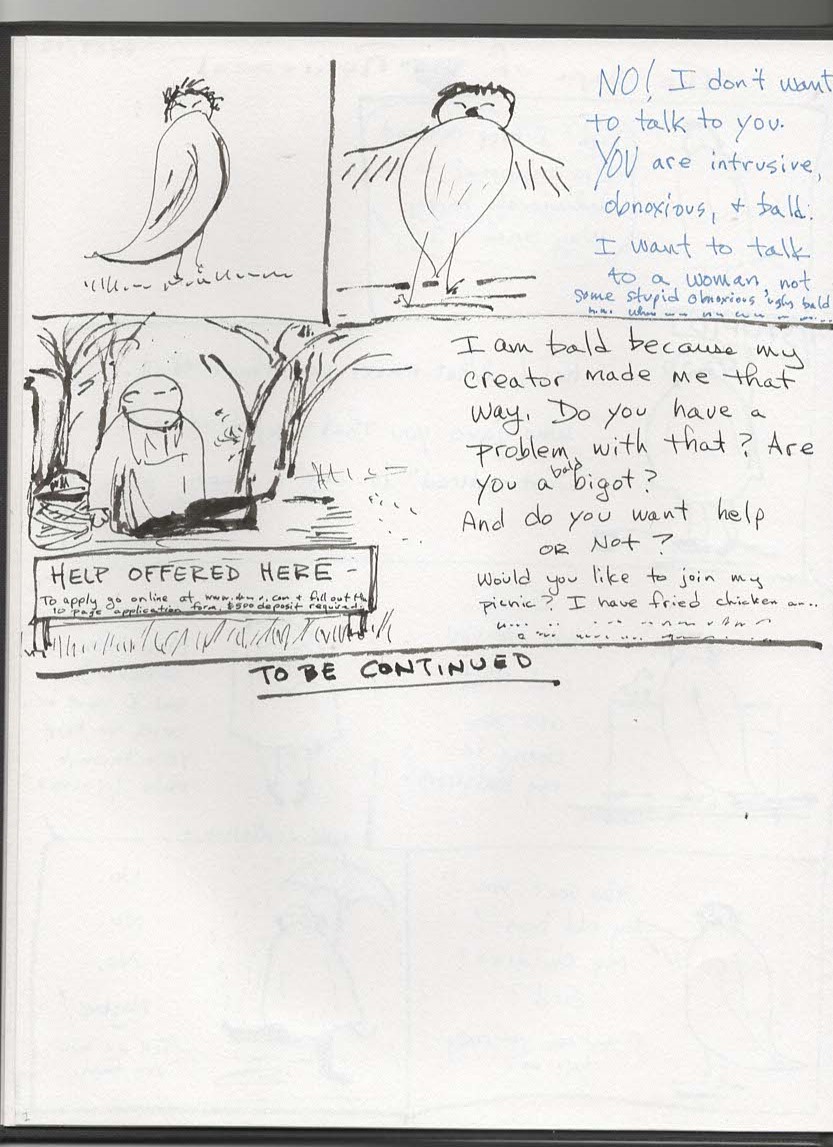 NO! I don't want
to talk to you.
YOU are intrusive,
obnoxious, & bald.
I want to talk
to a woman, not
some stupid obnoxious ugly bald
I am bald because my
creator made me that
way. Do you have a
problem with that? Are
you a bald bigot?
And do you want help
OR NOT?
Would you like to join my
picnic? I have fried chicken an..
HELP OFFERED HERE -
To apply go online at & fill out the
10 page application form. $500 deposit required.
TO BE CONTINUED